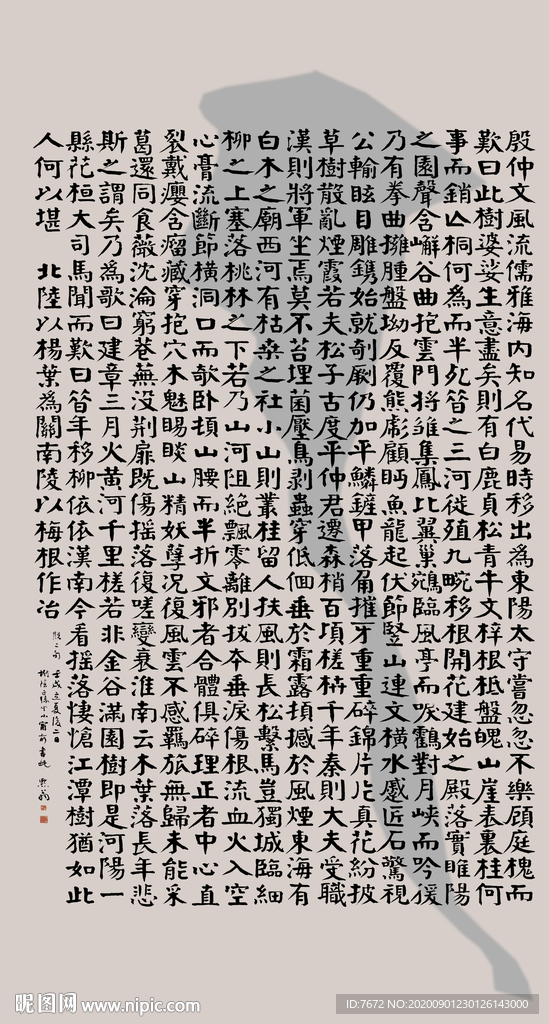 殷仲文風流儒雅海內知名代易時移出為東陽太守嘗忽忽不樂顧庭槐而
歎曰此樹婆娑生意盡矣則有白鹿貞松青牛文梓根柢盤魄山崖表裏桂何
事而銷亡桐何為而半死昔之三河徙殖九畹移根開花建始之殿落實睢陽
之園聲含嶰谷曲抱雲門將雛集鳳比翼巢鴛臨風亭而唳鶴對月峽而吟猨
乃有拳曲擁腫盤坳反覆熊彪顧眄魚龍起伏節竪山連文橫水蹙匠石驚視
公輸眩目雕鐫始就剞劂仍加平鱗鏟甲落角摧牙重重碎錦片片真花紛披
草樹散亂煙霞若夫松子古度平仲君遷森梢百頃槎枿千年秦則大夫受職
漢則將軍坐焉莫不苔埋菌壓鳥剝蟲穿低佪垂於霜露頓撼於風煙東海有
白木之廟西河有枯桑之社小山則叢桂留人扶風則長松繫馬豈獨城臨細
柳之上塞落桃林之下若乃山河阻絕飄零離別拔本垂淚傷根流血火入空
心膏流斷節橫洞口而欹卧頓山腰而半折文邪者合體俱碎理正者中心直
裂戴癭含瘤藏穿抱穴木魅睗睒山精妖孽況復風雲不感羈旅無歸未能采
葛還同食薇沈淪窮巷蕪没荊扉既傷搖落復嗟變衰淮南云木葉落長年悲
斯之謂矣乃為歌曰建章三月火黃河千里槎若非金谷滿園樹即是河陽一
縣花桓大司馬聞而歎曰昔年移柳依依漢南今看搖落悽愴江潭樹猶如此
人何以堪 北陸以楊葉為關南陵以梅根作冶
昵图网 www.nipic.com
ID:7672 NO:20200901230126143000